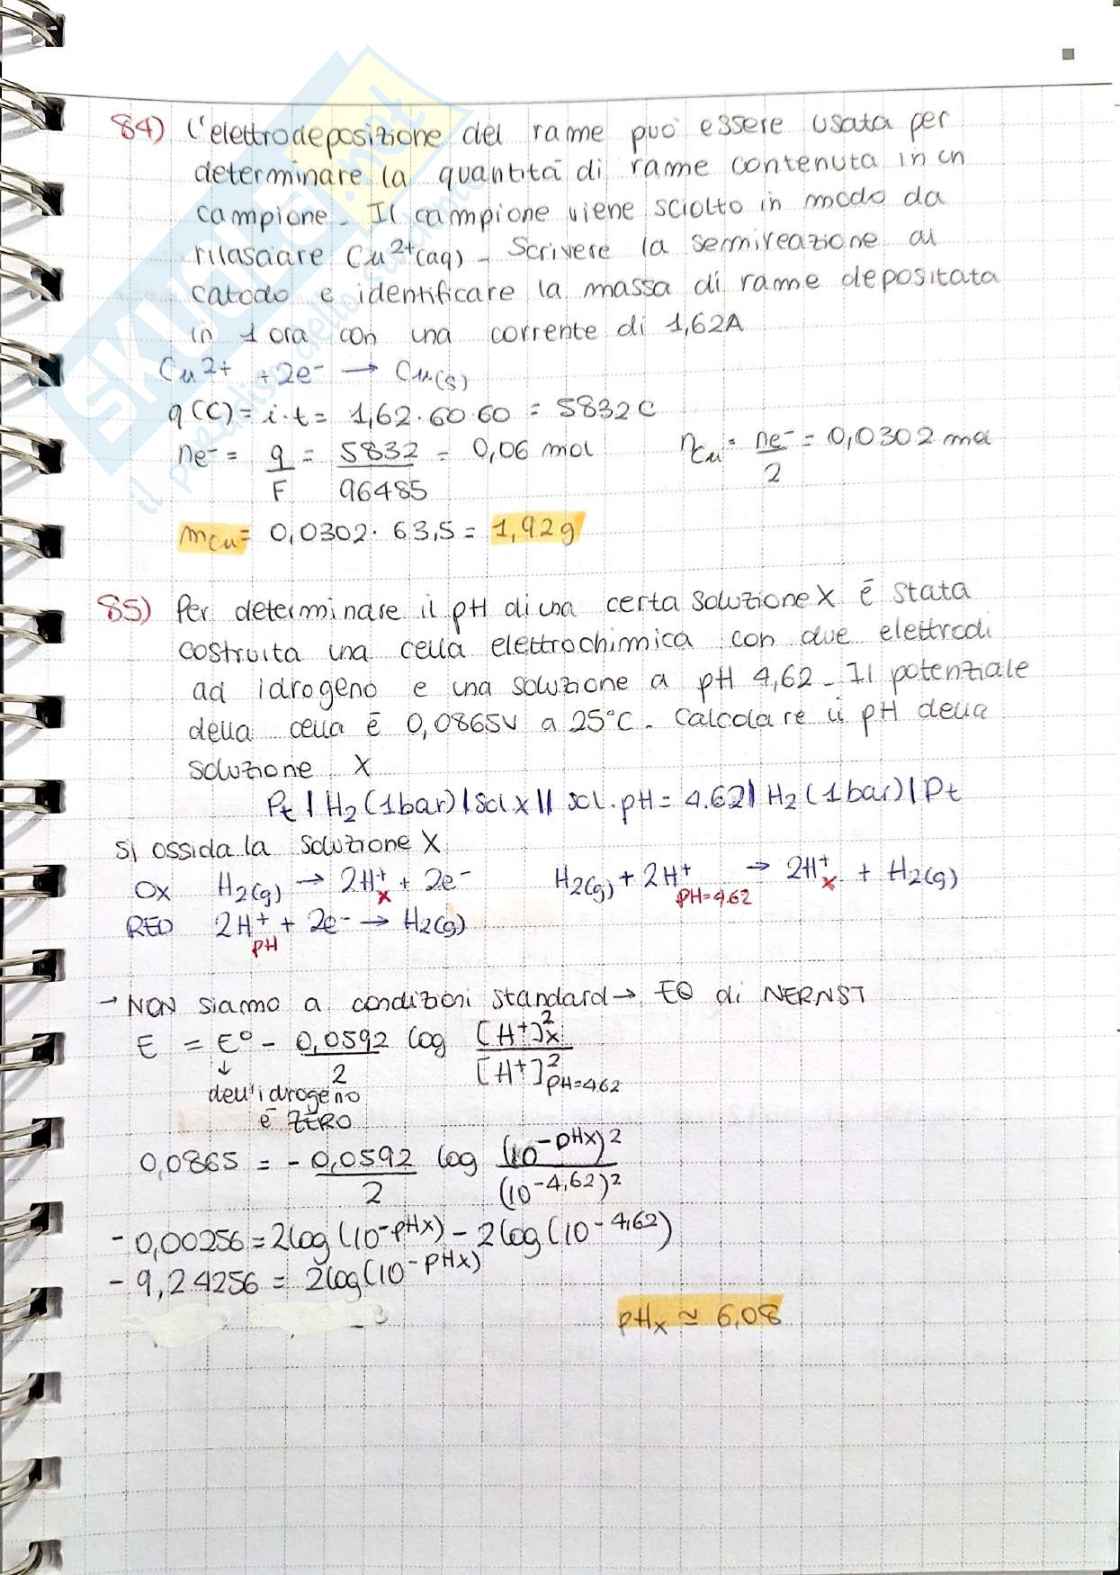 84) L'elettrodeposizione del rame può essere usata per
determinare la quantità di rame contenuta in un
campione. Il campione viene sciolto in modo da
rilasciare Cu²⁺(aq) - Scrivere la semireazione al
catodo e identificare la massa di rame depositata
in 1 ora con una corrente di 1,62A
Cu²⁺ + 2e⁻ → Cu(s)
q(C) = i·t = 1,62·60·60 = 5832 C
ne⁻ = q/F = 5832/96485 = 0,06 mol nCu = ne⁻/2 = 0,0302 mol
mCu = 0,0302· 63,5 = 1,92g
85) Per determinare il pH di una certa soluzione X è stata
costruita una cella elettrochimica con due elettrodi
ad idrogeno e una soluzione a pH 4,62 - Il potenziale
della cella è 0,0865V a 25°C. Calcolare il pH della
soluzione X
Pt | H₂ (1bar) | Sol x || sol. pH = 4.62 | H₂ (1bar) | Pt
Si ossida la soluzione X
OX H₂(g) → 2H⁺x + 2e⁻ H₂(g) + 2H⁺pH=4.62 → 2H⁺x + H₂(g)
RED 2H⁺pH + 2e⁻ → H₂(g)
→ NON siamo a condizioni standard → EQ di NERNST
E = E° - 0,0592/2 log [H⁺]²x/[H⁺]²pH=4.62
↓
dell'idrogeno
è ZERO
0,0865 = - 0,0592/2 log (10^-pHx)²/(10^-4,62)²
- 0,00256 = 2log(10^-pHx) - 2log(10^-4,62)
- 9,24256 = 2log(10^-pHx)
pHx ≃ 6,08
SKUOLA.net